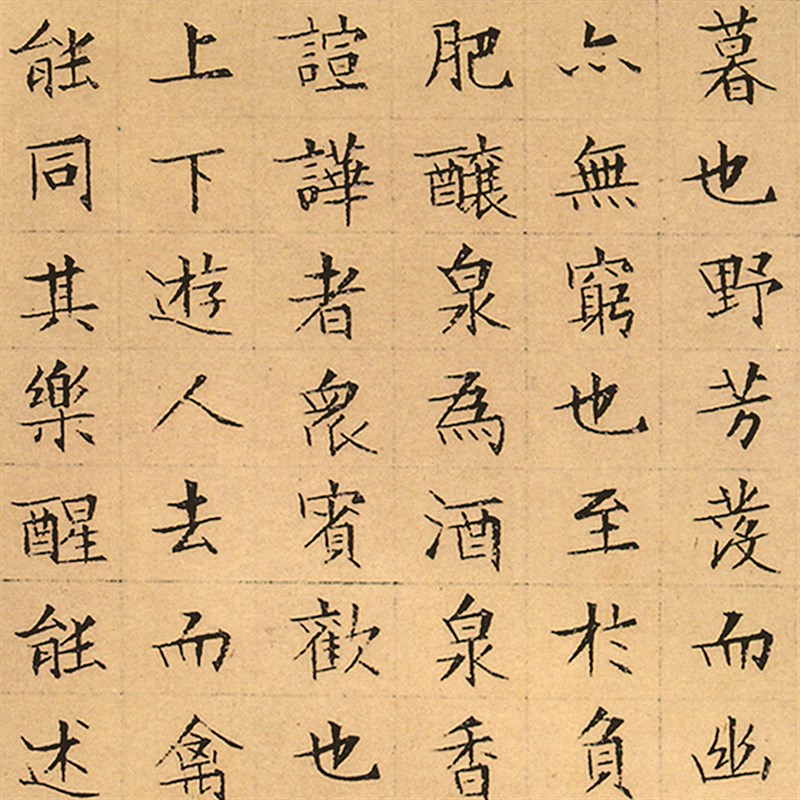 暮也野芳發而幽
亦無窮也至於負
肥釀泉為酒泉香
諠譁者眾賓歡也
上下遊人去而禽
能同其樂醒能述